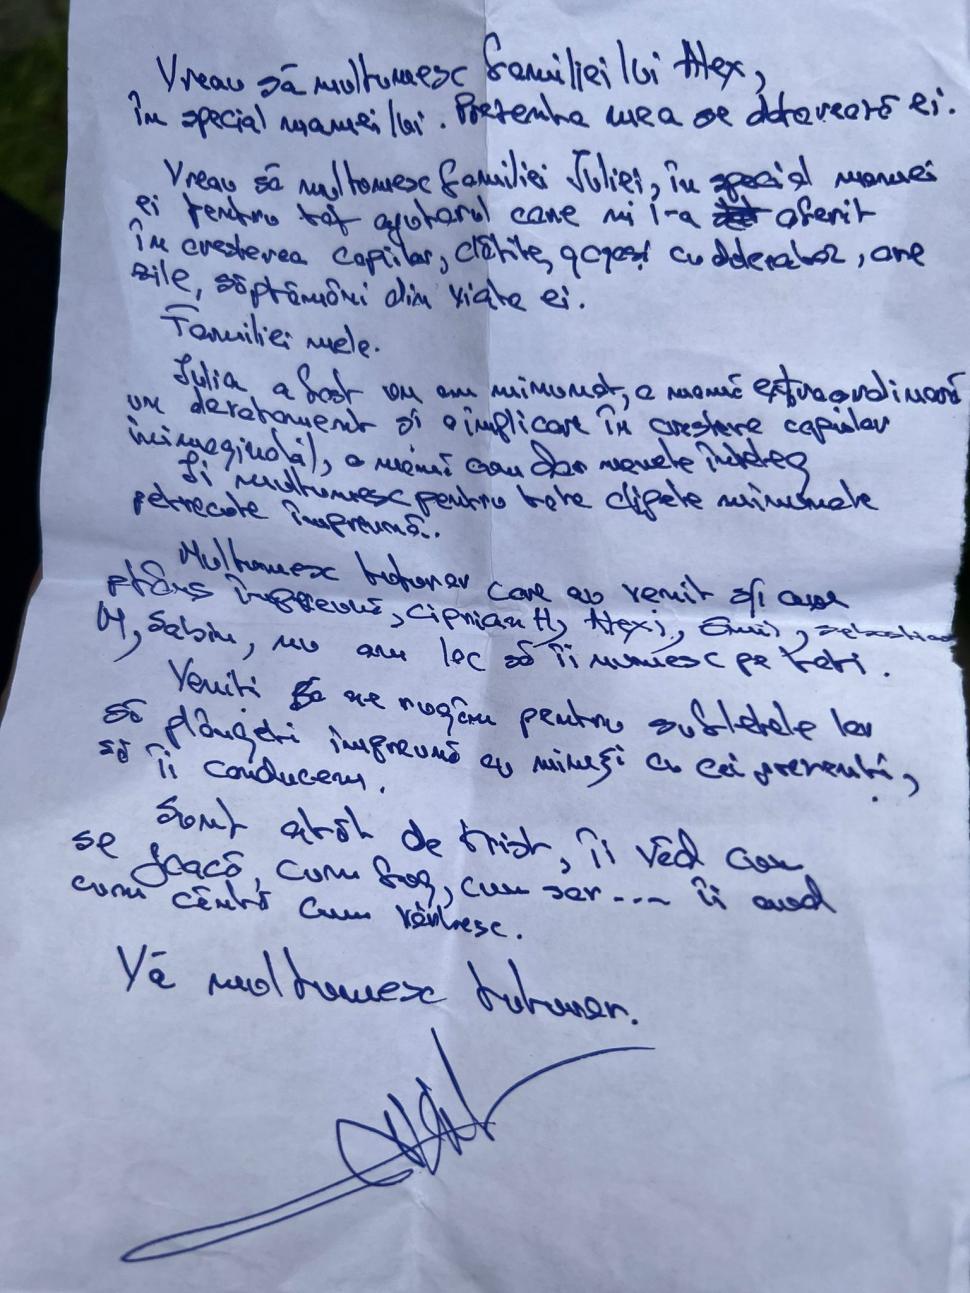 Vreau să multumesc familiei lui Alex,
în special mamei lui. Prezenta mea se datorează ei.
Vreau să multumesc familiei Iuliei, în special mamei
ei pentru tot ajutorul care mi l-a oferit
în cresterea copiilor, clătite, gogosi cu ore
zile, săptămâni din viata ei.
Familiei mele.
Iulia a fost un om minunat, o mamă extraordinară
un devotament si o implicare în crestere copiilor
inimaginabil, o mamă cum doar navele înteleg
Ii multumesc pentru tote clipele minunate
petrecute împreună.
Multumesc tuturor care au venit si au
plâns împreună, Ciprian H, Alexi, Emil, Sebastian
M, Sabin, nu am loc să îi numesc pe toti.
Veniti să ne rugăm pentru sufletele lor
să plângeti împreună cu mine si cu cei prezenti,
să îi conducem.
Sunt atât de trist, îi văd cum
se joacă, cum fug, cum sar .... îi aud
cum cântă cum vorbesc.
Vă multumesc tuturor.